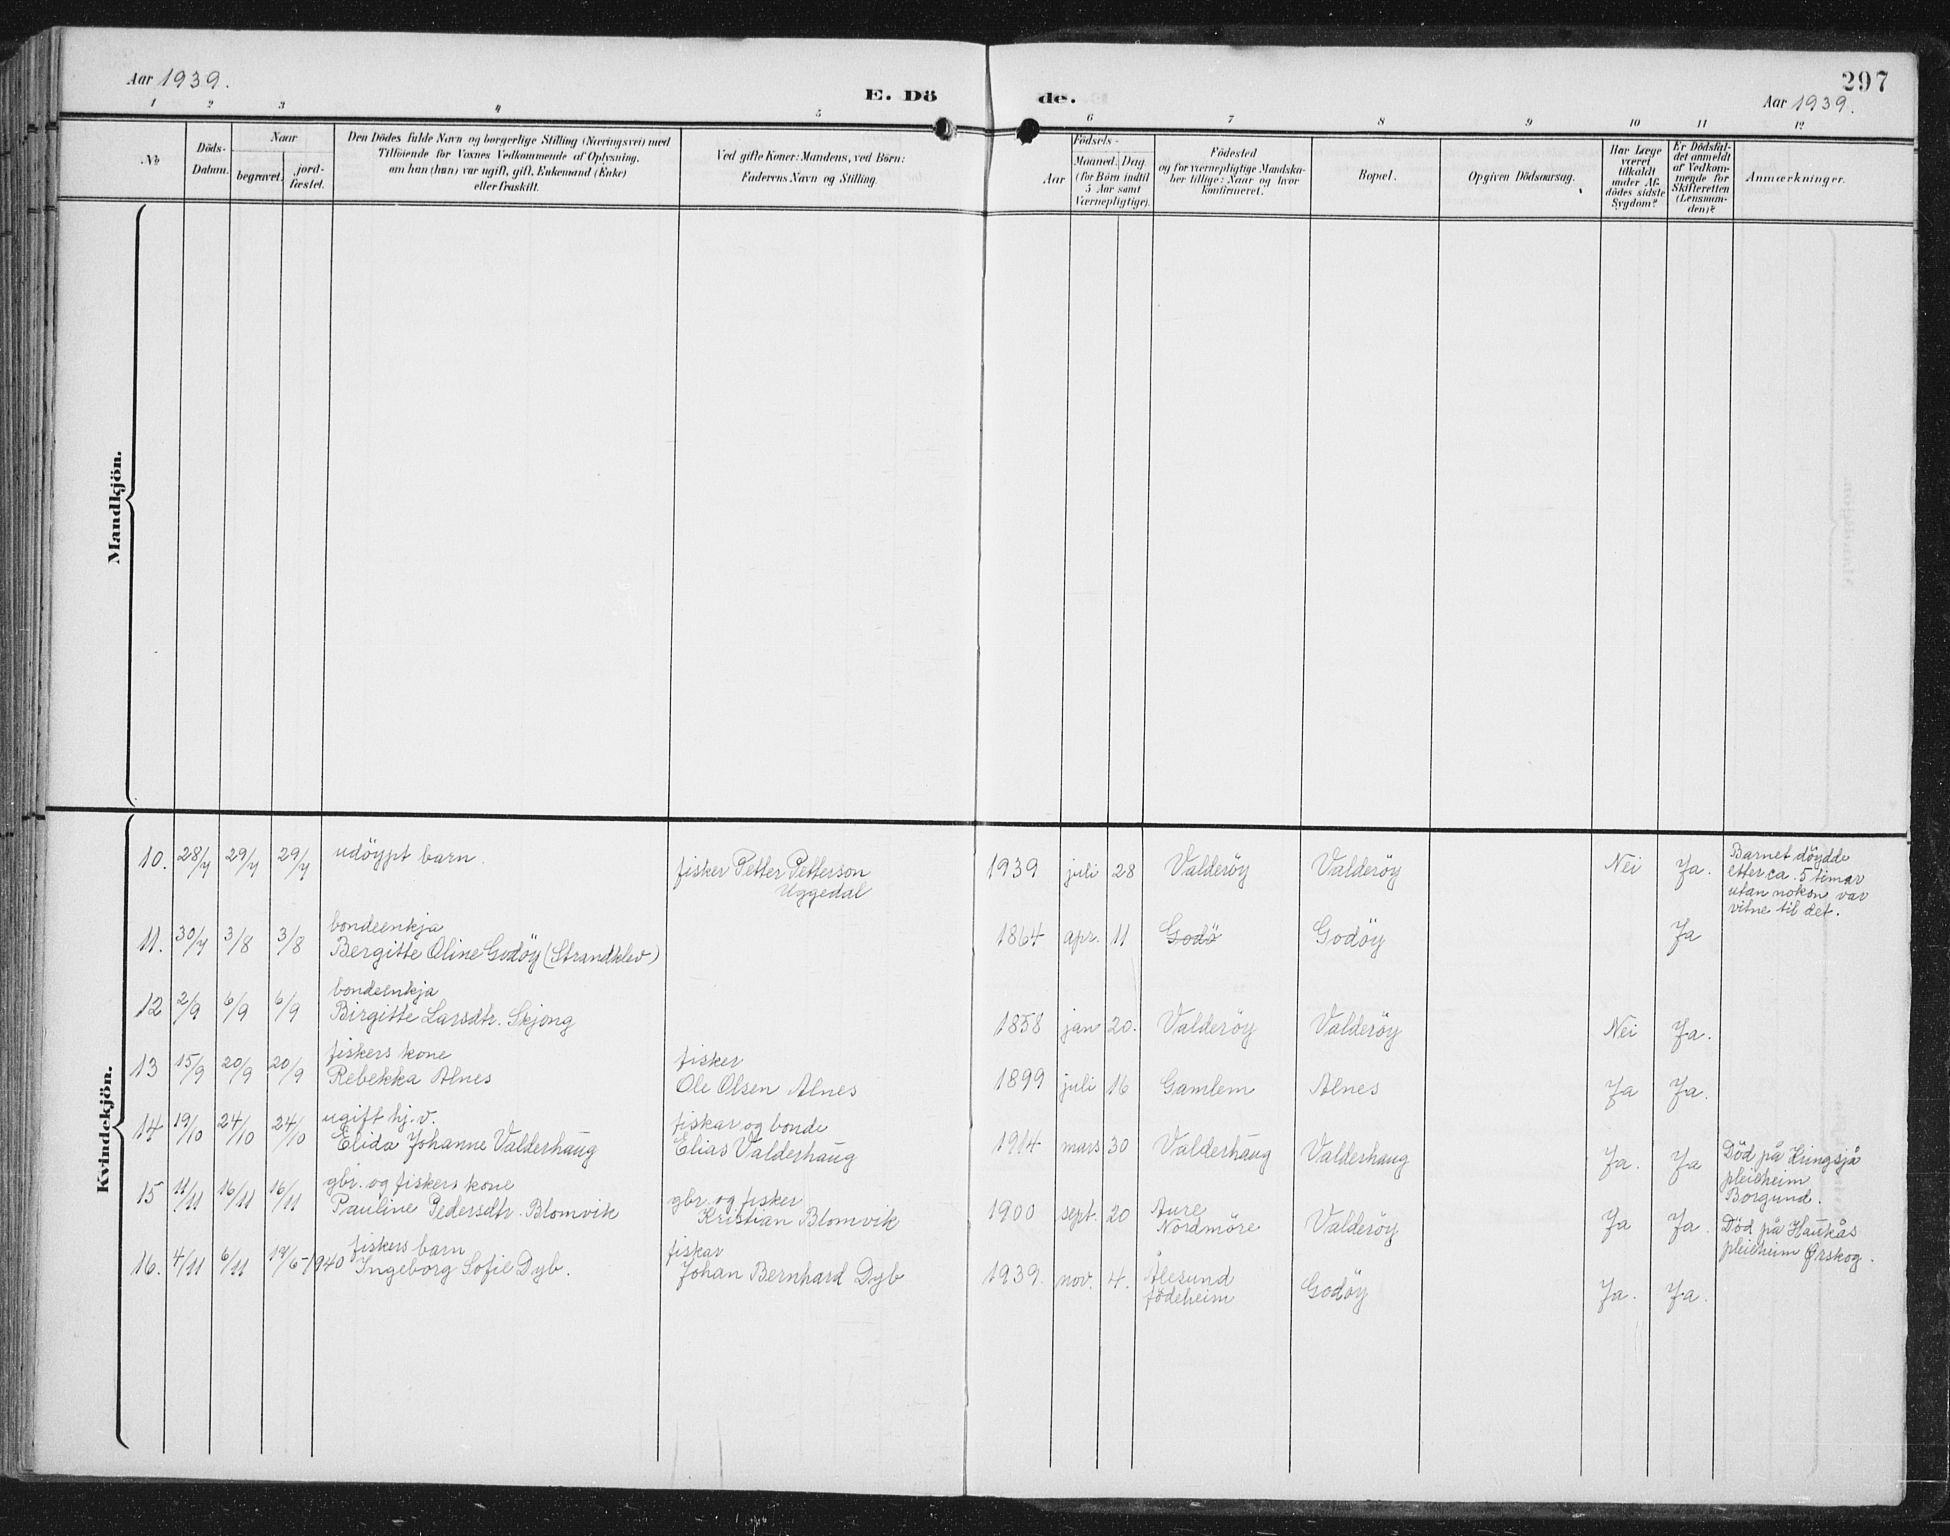 Aar 1939.
E. Dö
de.
297
Aar 1939.
1 2 3 4 5 6 7 8 9 10 11 12
No
Döds-
Datum.
Naar
begravet.
jord-
fæstet.
Den Dödes fulde Navn og borgerlige Stilling (Næringsvei) med
Tilföiende for Voxnes Vedkommende af Oplysning,
om han (hun) var ugift, gift, Enkemand (Enke)
eller fraskilt.
Ved gifte Koner: Mandens, ved Börn:
Faderens Navn og Stilling.
Födsels-
Aar
Maaned. Dag.
(for Börn indtil
5 Aar samt
Værnepligtige).
Födested
og for værnepligtige Mandska-
ber tillige: Naar og hvor
konfirmeret.
Bopæl.
Opgiven Dödsaarsag.
Har Læge
været
tilkaldt
under Af-
dödes sidste
Sygdom?
Er Dödsfal-
det anmeldt
af Vedkom-
mende for
Skifteretten
(Lensman-
den)?
Anmærkninger.
Mandkjön.
Kvindekjön.
10. 28/7 29/7 29/7 udöypt barn. fisker Petter Petterson 1939 juli 28 Valderöy Valderöy Nei Ja. Barnet döydde
Uggedal etter ca. 5 timar
utan nokon var
vitne til det.
bondeenkja
11. 30/7 3/8 3/8 Bergitte Oline Godöy (Strandklev) 1864 apr. 11 Godö Godöy Ja
bondeenkja
12 2/9 6/9 6/9 Birgitte Larsdtr. Skjong 1858 jan 20. Valderöy Valderöy Nei Ja.
fiskers kone fisker
13 15/9 20/9 20/9 Rebekka Alnes Ole Olsen Alnes 1899 juli 16 Gamlem Alnes Ja Ja.
ugift hj.v. fiskar og bonde
14 19/10 24/10 24/10 Elida Johanne Valderhaug Elias Valderhaug 1914 mars 30 Valderhaug Valderhaug Ja. Ja Död på Kringsjå
pleieheim
Borgund.
gbr. og fiskers kone gbr. og fisker
15 11/11 16/11 16/11 Pauline Pedersdtr. Blomvik Kristian Blomvik 1900 sept. 20 Aure Valderöy Ja Ja. Död på Haukås
Nordmöre pleieheim Ørskog.
fiskers barn fiskar
16. 4/11 6/11 /6-1940 Ingeborg Sofie Dyb. Johan Bernhard Dyb 1939. nov. 4. Ålesund Godöy Ja. Ja.
födeheim